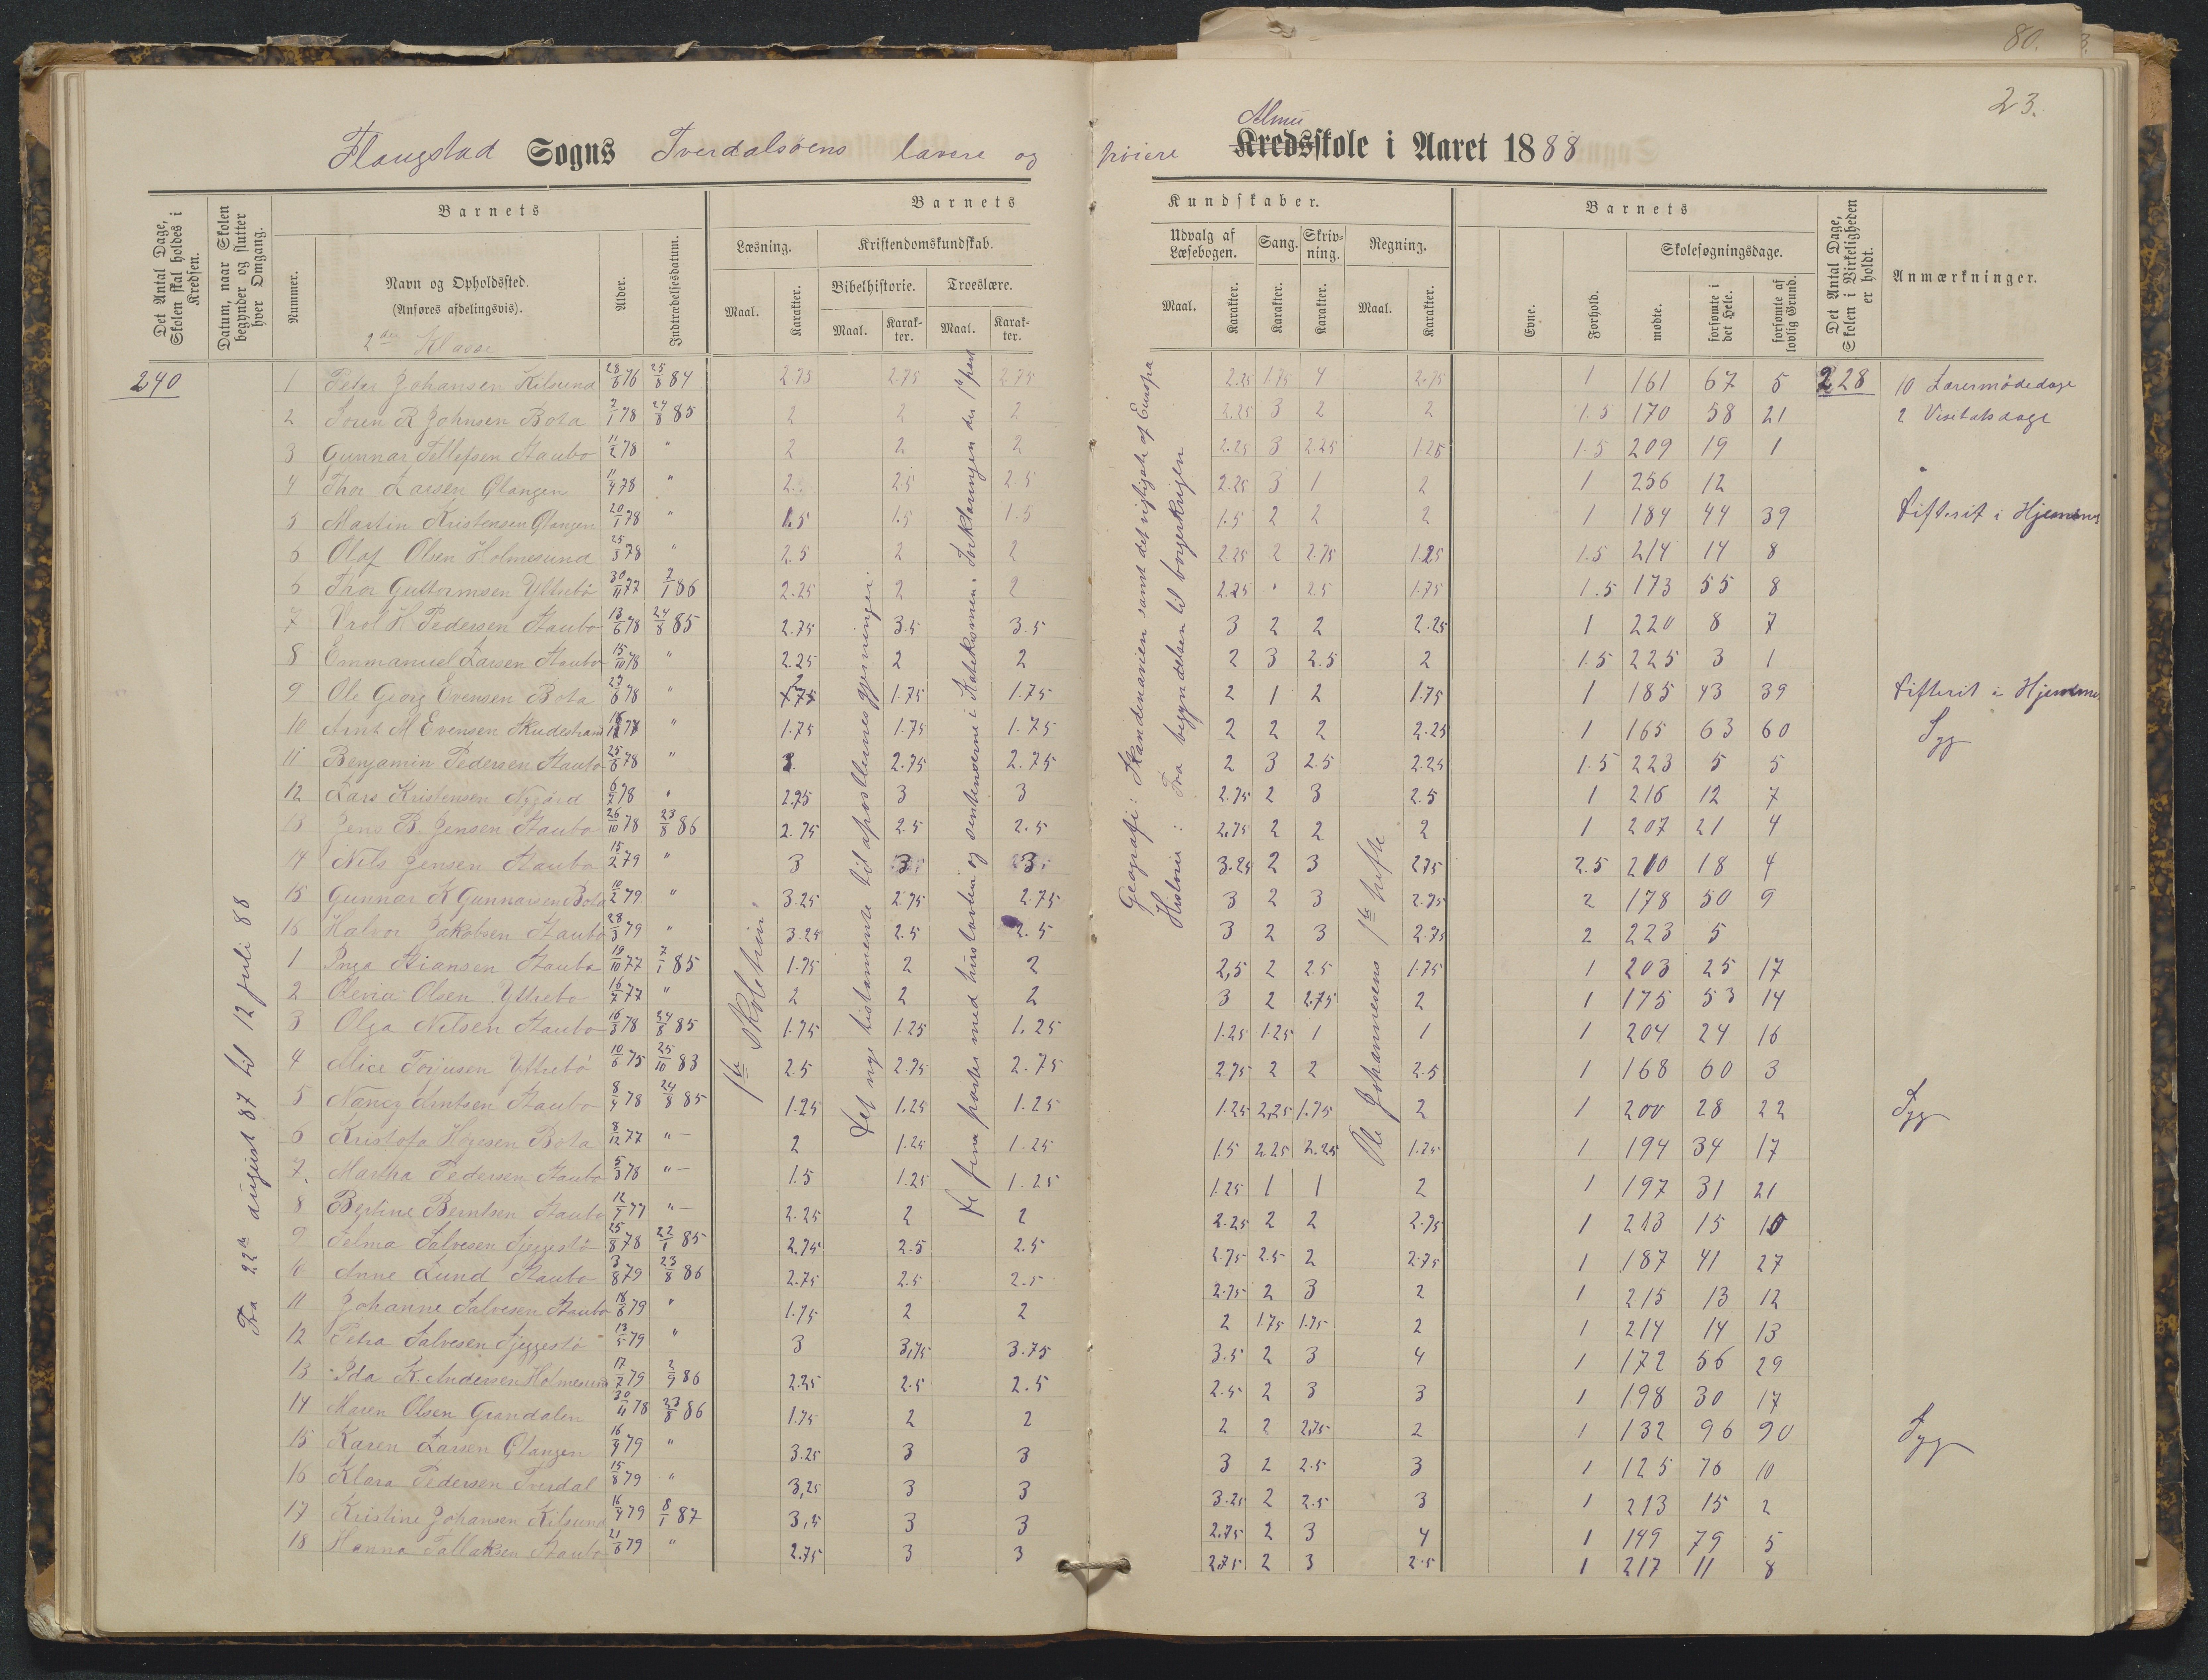 80.
23.
Flangstad Sogns Tverdalsøens lavere og høiere Almu Kredsskole i Aaret 1888
Det Antal Dage, Skolen skal holdes i Kredsen.
Datum, naar Skolen begynder og slutter hver Omgang.
Barnets
Nummer.
Navn og Opholdssted.
(Anføres afdelingsvis).
2den Klasse
Alder.
Indtrædelsesdatum.
Barnets
Læsning.
Maal.
Karakter.
Kristendomskundskab.
Bibelhistorie.
Maal.
Karakter.
Troeslære.
Maal.
Karakter.
Kundskaber.
Udvalg af Læsebogen.
Maal.
Karakter.
Sang.
Karakter.
Skrivning.
Karakter.
Regning.
Maal.
Karakter.
Barnets
Evne.
Forhold.
Skolesøgningsdage.
mødte.
forsømte i det Hele.
forsømte af lovlig Grund.
Det Antal Dage, Skolen i Virkeligheden er holdt.
Anmærkninger.
240
Fra 22de august 87 til 12 juli 88
1ste skoletrin
Det nye testamente til apostlernes gjerninger.
De fem parter med hustavlen og sentenserne i Katekismen. Forklaringen den 1ste part
Geografi: Skandenavien samt det vigtigste af Europa
Historie: Fra begyndelsen til borgerkrigen
Ole Johannesens 1ste hefte
1 Peter Johansen Kilsund 28/6 76 25/8 84 2.75 2.75 2.75 2.25 1.75 4 2.75 1 161 67 5 228 10 Lærermødedage
2 Soren R Johnsen Bota 2/1 78 24/8 85 2 2 2 2.25 3 2 2 1.5 170 58 21 2 Visitatsdage
3 Gunnar Tellefsen Staubo 11/2 78 " 2 2 2 2.25 3 2.25 1.25 1.5 209 19 1
4 Thor Larsen Glangen 11/4 78 " 2. 2.5 2.5 2.25 3 1 2 1 256 12
5 Martin Kristensen Glangen 20/1 78 " 1.5 1.5 1.5 1.5 2 2 2 1 184 44 39 Difterit i Hjemmet
6 Olaf Olsen Holmesund 25/3 78 " 2.5 2 2 2.25 2 2.75 1.25 1.5 214 14 8
6 Thor Guttormsen Yttrebø 30/11 77 2/1 86 2.25 2 2 2.25 " 2.5 1.75 1.5 173 55 8
7 Urol H Pedersen Staubo 13/6 78 24/8 85 2.75 3.5 3.5 3 2 2 2.25 1 220 8 7
8 Emmanuel Larsen Staubo 15/10 78 " 2.25 2 2 2 3 2.5 2 1.5 225 3 1
9 Ole Georg Evensen Bota 29/6 78 " 2 1.75 1.75 2 1 2 1.75 1 185 43 39 Difterit i Hjemme
10 Arnt M Evensen Skudestrand " 1.75 1.75 1.75 2 2 2 2.25 1 165 63 60 Syg
11 Benjamin Pedersen Staubo 25/6 78 " 3. 2.75 2.75 2 3 2.5 2.25 1.5 223 5 5
12 Lars Kristensen Nygård 6/7 78 " 2.75 3 3 2.75 2 3 2.5 1 216 12 7
13 Jens B. Jensen Staubo 26/10 78 23/8 86 2.75 2.5 2.5 2.75 2 2 2 1 207 21 4
14 Nils Jensen Staubo 15/2 79 " 3 3 3 3.25 2 3 2.75 2.5 210 18 4
15 Gunnar K Gunnarsen Bota 10/2 79 " 3.25 2.75 2.75 3 2 3 2.75 2 178 50 9
16 Halvor Jakobsen Staubo 28/3 79 " 3.25 2.5 2.5 3 2 3 2.75 2 223 5
1 Inga Stiansen Staubo 19/10 77 7/1 85 1.75 2 2 2,5 2 2.5 1.75 1 203 25 17
2 Olevia Olsen Yttrebø 16/7 77 " 2 2 2 3 2 2.75 2 1 175 53 14
3 Olga Nilsen Staubo 16/3 78 24/8 85 1.75 1.25 1.25 1.25 1.25 1 1 1 204 24 16
4 Alice Terjesen Yttrebø 10/6 75 25/10 83 2.5 2.75 2.75 2.75 2 2 2.5 1 168 60 3
5 Nancy Knutsen Staubo 8/4 78 24/8 85 1.25 1.25 1.25 1.25 2,25 1.75 2 1 200 28 22 Syg
6 Kristofa Bota 8/12 77 " 2 1.25 1.25 1.5 2.25 2.25 1.25 1 194 34 17
7. Martha Pedersen Staubo 5/3 78 " 1.5 1.25 1.25 1.25 1 1 2 1 197 31 21
8 Bertine Berntsen Staubo 12/7 77 " 2.25 2 2 2.25 2 2 2.75 1 213 15 10
9 Selma Salvesen Sjeggestø 25/8 78 22/1 85 2.75 2.5 2.5 2.75 2.5 2 2.75 1 187 41 27
10 Anne Lund Staubo 3/8 79 23/8 86 2.75 2.5 2.5 2.75 2 3 2 1 215 13 12
11 Johanne Salvesen Staubo 18/6 79 " 1.75 2 2 2 1.75 1.75 2 1 214 14 13
12 Petra Salvesen Sjeggestø 13/5 79 " 3 3,75 3.75 3.5 2 3 4 1 172 56 29
13 Ida K. Andersen Holmesund 17/7 79 2/9 86 2.25 2.5 2.5 2.5 2 3 3 1 198 30 17
14 Maren Olsen Grandalen 30/11 78 23/8 86 1.75 2 2 2 2 2.75 2 1 132 96 90 Syg
15 Karen Larsen Glangen 16/9 79 " 3.25 3 3 3 2 2.5 3 1 125 76 10
16 Klara Pedersen Tverdal 15/8 79 " 3,25 3 3 3.25 2 2.5 3 1 213 15 2
17 Kristine Johansen Kilsund 16/4 79 8/1 87 3,5 3 3 2.75 2 3 4 1 149 79 5
18 Hanna Tallaksen Staubo 21/6 79 " 2.75 3 3 2.75 2 3 2.5 1 217 11 8